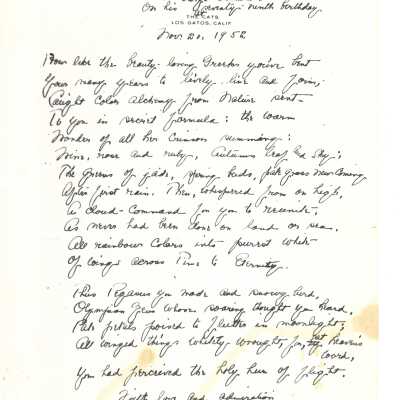 On his seventy-ninth birthday
THE CATS,
LOS GATOS, CALIF.
Nov. 20, 1952
How like the beauty-loving Greeks you've bent
Your many years to lively line and form,
Caught Color Alchemy from Nature sent
To you in secret formula: the warm
Wonder of all her Crimson summoning:
Wine, rose and ruby, Autumn leaf and sky;
The greens of jade, spring buds, pale grass new coming
After first rain. Then, whispered from on high,
A cloud-Command for you to reunite,
As never had been done on land or sea,
All rainbow colors into purest white
Of wings across Time to Eternity.
This Pegasus you made and snowy bird,
Olympian Zeus whose soaring thought you heard,
Pale petals poised to flutter in moonlight,
All winged things whitely wrought, for, at Heaven's
word,
You had perceived the holy hue of flight.
With love and admiration